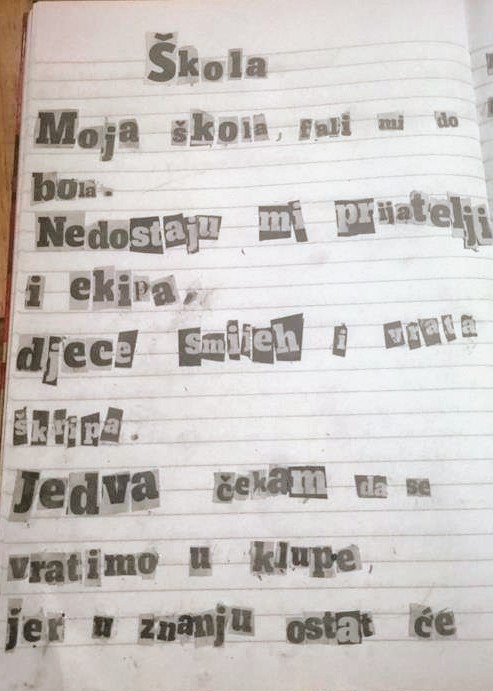 Škola
Moja škola, fali mi do
bola.
Nedostaju mi prijatelji
i ekipa,
djece smijeh i vrata
škripa.
Jedva čekam da se
vratimo u klupe,
jer u znanju ostat će